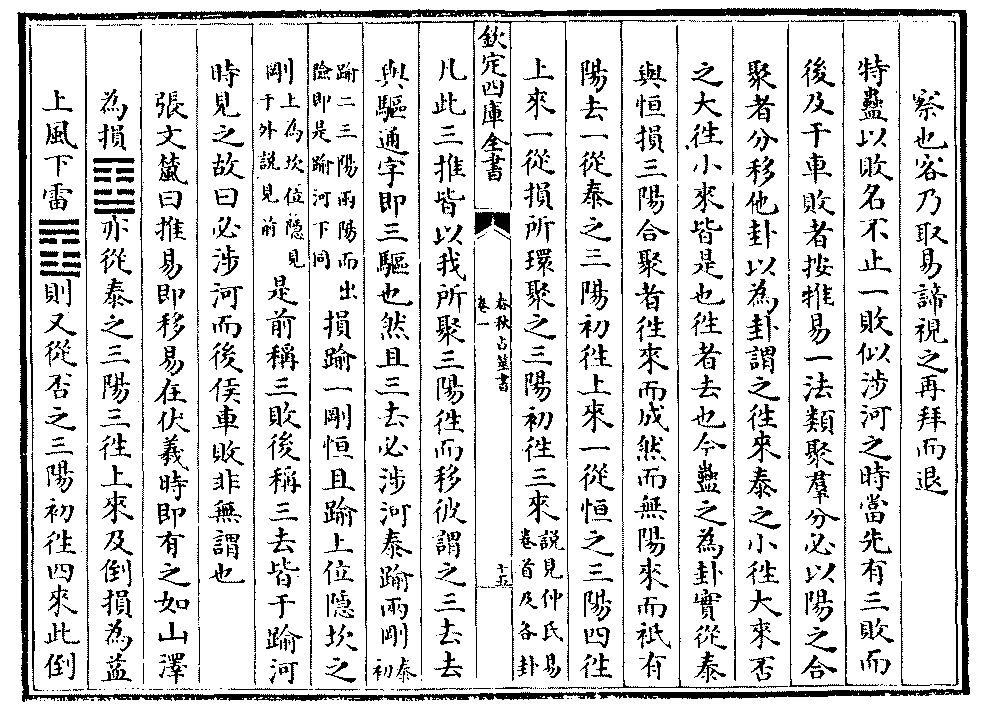 察也客乃取易諦視之再拜而退
特蠱以敗名不止一敗似涉河之時當先有三敗而
後及于車敗者按推易一法類聚羣分必以陽之合
聚者分移他卦以為卦謂之徃來泰之小徃大來否
之大徃小來皆是也徃者去也今蠱之為卦實從泰
與恒損三陽合聚者徃來而成然而無陽來而祇有
陽去一從泰之三陽初徃上來一從恒之三陽四徃
上來一從損所環聚之三陽初徃三來說見仲氏易卷首及各卦
欽定四庫全書
春秋占筮書
卷一
十五
凡此三推皆以我所聚三陽徃而移彼謂之三去去
與驅通字即三驅也然且三去必涉河泰踰兩剛泰初
踰二三陽兩陽而出險即是踰河下同損踰一剛恒且踰上位隱坎之
剛上為坎位隱見于外說見前是前稱三敗後稱三去皆于踰河
時見之故曰必涉河而後侯車敗非無謂也
張文虪曰推易即移易在伏羲時即有之如山澤
為損䷨亦從泰之三陽三徃上來及倒損為益
上風下雷䷩則又從否之三陽初徃四來此倒